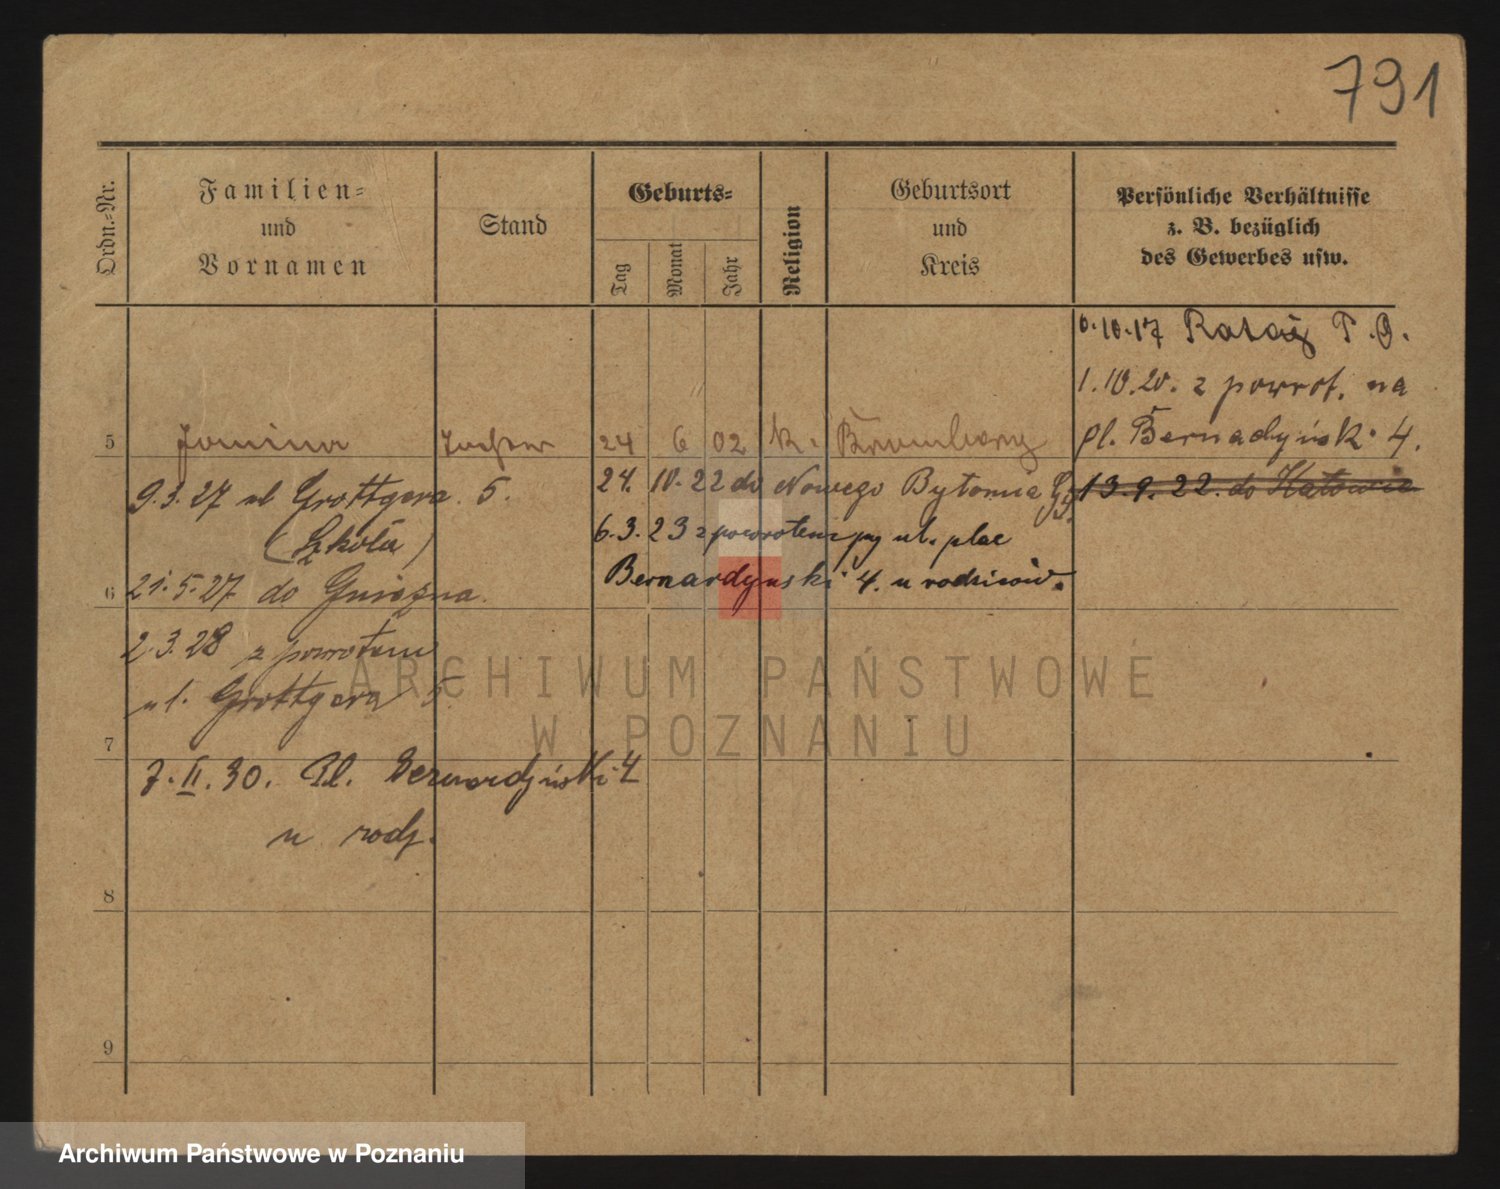 791
Ordn.-Nr.
Familien-
und
Vornamen
Stand
Geburts-
Tag
Monat
Jahr
Religion
Geburtsort
und
Kreis
Persönliche Verhältnisse
z. B. bezüglich
des Gewerbes usw.
6.10.17 Rataj P.O.
1.10.20. z powrot. na
pl. Bernadyńsk. 4.
5 Janina Tochter 24 6 02 k. Bromberg
13.9.22. do Katowic
24. 10. 22 do Nowego Bytomia
6.3.23 z powrotem ul. plac
Bernardynski 4. u rodziców.
9.3.27 ul Grottgera 5.
(Szkoła)
6 21.5.27 do Gniezna.
2.3.28 z powrotem
ul. Grottgera 5.
7
7.II.30. Pl. Bernardyński 4
u rodz.
8
9
ARCHIWUM PAŃSTWOWE
W POZNANIU
Archiwum Państwowe w Poznaniu